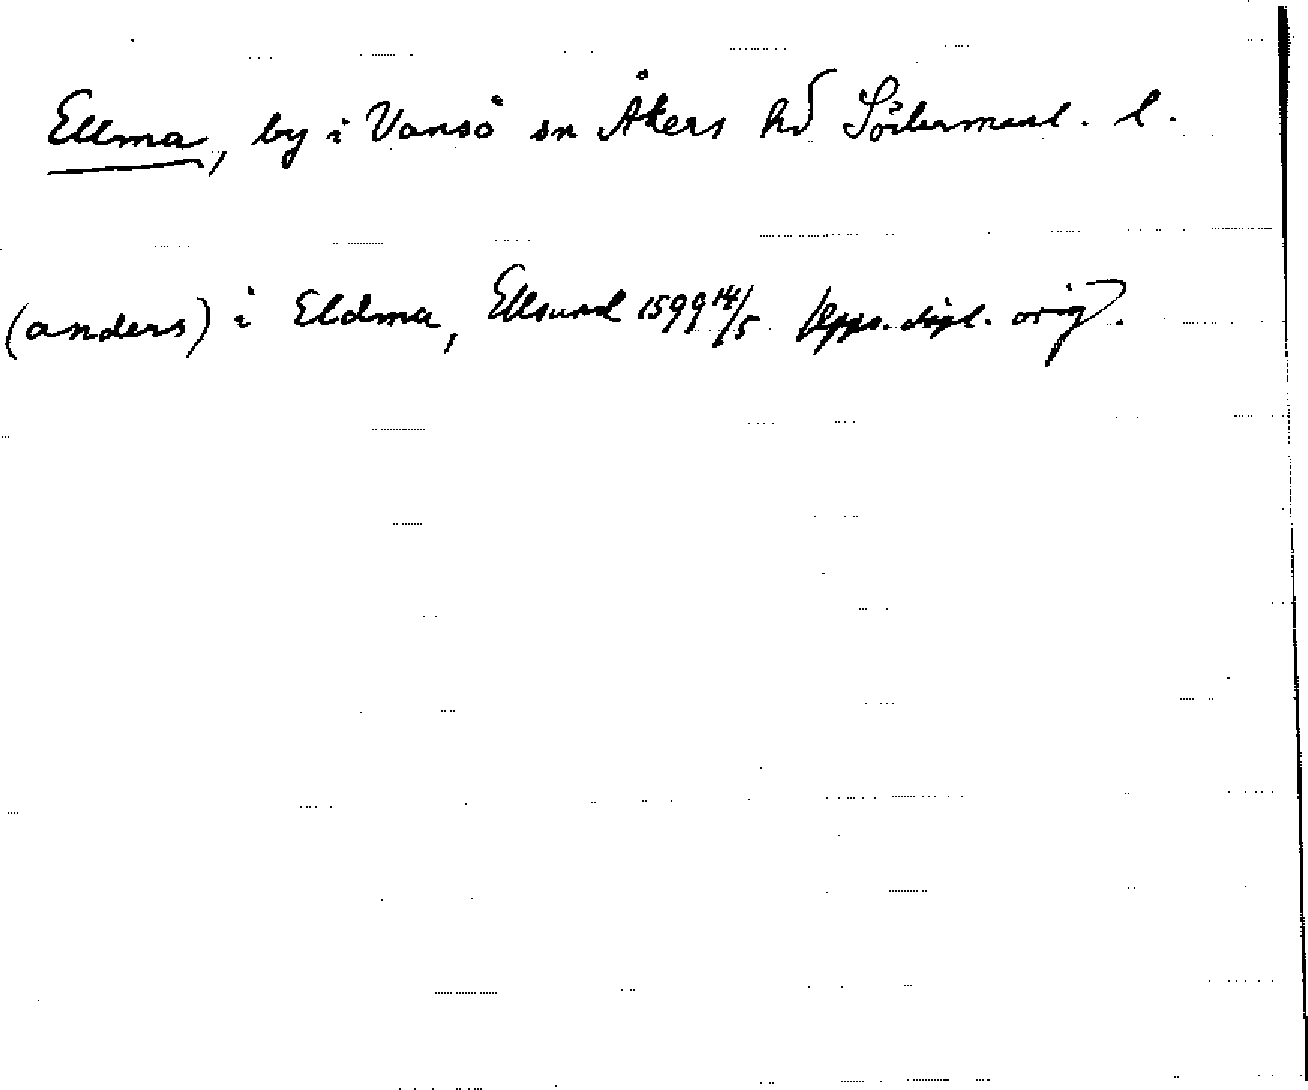 Ellma, by i Vansö sn Åkers hd Södermanl. l.
(anders) i Eldma, Ellsund 1599 14/5 Upps. dipl. orig.